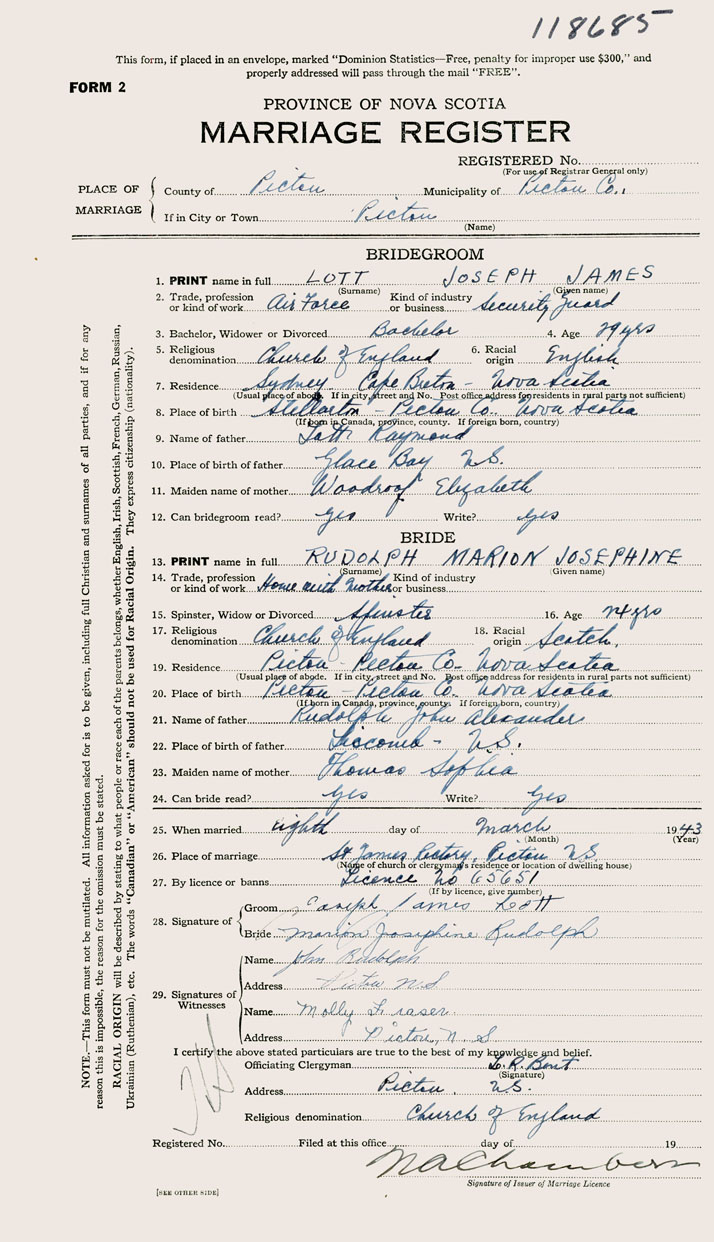 118685
This form, if placed in an envelope, marked "Dominion Statistics—Free, penalty for improper use $300," and
properly addressed will pass through the mail "FREE".
FORM 2
PROVINCE OF NOVA SCOTIA
MARRIAGE REGISTER
REGISTERED No.
(For use of Registrar General only)
PLACE OF MARRIAGE
County of Pictou Municipality of Pictou Co.,
If in City or Town Pictou
(Name)
BRIDEGROOM
1. PRINT name in full LOTT JOSEPH JAMES
(Surname) (Given name)
2. Trade, profession or kind of work Air Force Kind of industry or business Security Guard
3. Bachelor, Widower or Divorced Bachelor 4. Age 29 yrs
5. Religious denomination Church of England 6. Racial origin English
7. Residence Sydney Cape Breton - Nova Scotia
(Usual place of abode. If in city, street and No. Post office address for residents in rural parts not sufficient)
8. Place of birth Stellarton - Pictou Co. Nova Scotia
(If born in Canada, province, county. If foreign born, country)
9. Name of father Lott Raymond
10. Place of birth of father Glace Bay N.S.
11. Maiden name of mother Woodroof Elizabeth
12. Can bridegroom read? yes Write? yes
BRIDE
13. PRINT name in full RUDOLPH MARION JOSEPHINE
(Surname) (Given name)
14. Trade, profession or kind of work Home with Mother Kind of industry or business
15. Spinster, Widow or Divorced Spinster 16. Age 24 yrs
17. Religious denomination Church of England 18. Racial origin Scotch.
19. Residence Pictou - Pictou Co. Nova Scotia
(Usual place of abode. If in city, street and No. Post office address for residents in rural parts not sufficient)
20. Place of birth Pictou - Pictou Co. Nova Scotia
(If born in Canada, province, county. If foreign born, country)
21. Name of father Rudolph John Alexander
22. Place of birth of father Liscomb - N.S.
23. Maiden name of mother Thomas Sophia
24. Can bride read? yes Write? yes
25. When married eighth day of March 1943
(Month) (Year)
26. Place of marriage St James Rectory, Pictou N.S.
(Name of church or clergyman's residence or location of dwelling house)
27. By licence or banns Licence No 65651
(If by licence, give number)
28. Signature of
Groom Joseph James Lott
Bride Marion Josephine Rudolph
29. Signatures of Witnesses
Name John Rudolph
Address Pictou N.S.
Name Molly Fraser
Address Pictou, N.S.
I certify the above stated particulars are true to the best of my knowledge and belief.
Officiating Clergyman
(Signature)
Address Pictou. N.S.
Religious denomination Church of England
Registered No. Filed at this office day of 19
Chambers
Signature of Issuer of Marriage Licence
[SEE OTHER SIDE]
NOTE.—This form must not be mutilated. All information asked for is to be given, including full Christian and surnames of all parties, and if for any
reason this is impossible, the reason for the omission must be stated.
RACIAL ORIGIN will be described by stating to what people or race each of the parents belongs, whether English, Irish, Scottish, French, German, Russian,
Ukrainian (Ruthenian), etc. The words "Canadian" or "American" should not be used for Racial Origin. They express citizenship (nationality).